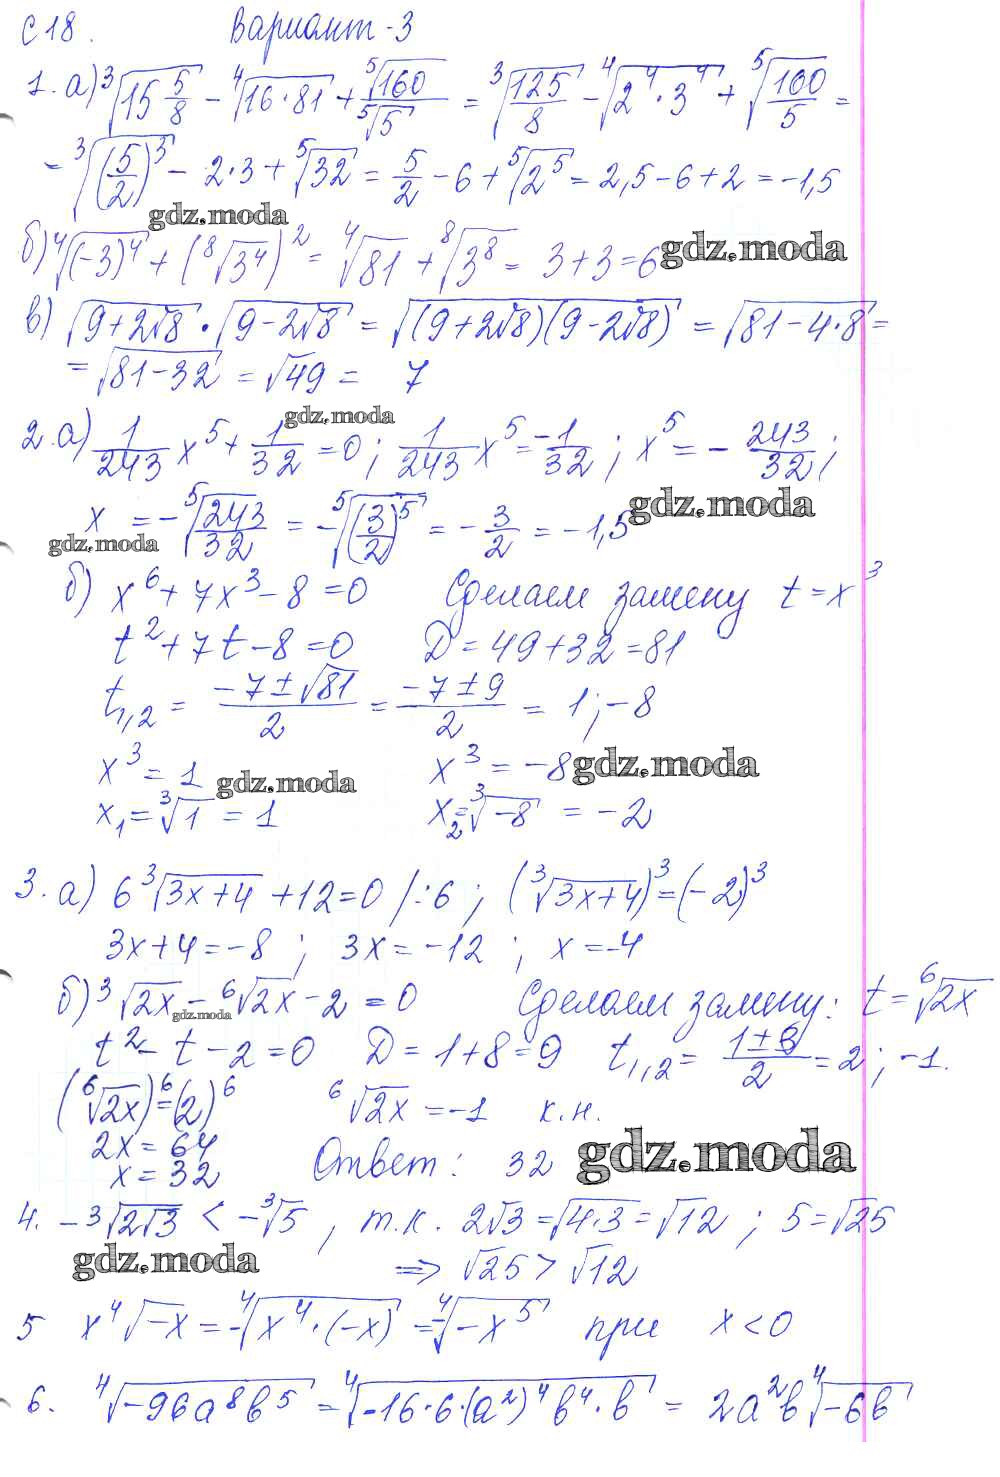 С 18. Вариант-3
1. а) ∛(15 5/8) − ⁴√(16·81) + ⁵√160/⁵√5 = ∛(125/8) − ⁴√(2⁴·3⁴) + ⁵√(160/5) =
= ∛((5/2)³) − 2·3 + ⁵√32 = 5/2 − 6 + ⁵√(2⁵) = 2,5−6+2 = −1,5
gdz.moda
б) ⁴√((−3)⁴) + (⁸√(3⁴))² = ⁴√81 + ⁸√(3⁸) = 3+3=6 gdz.moda
в) √(9+2√8) · √(9−2√8) = √((9+2√8)(9−2√8)) = √(81−4·8) =
= √(81−32) = √49 = 7
gdz.moda
2. а) 1/243 x⁵ + 1/32 = 0; 1/243 x⁵ = −1/32; x⁵ = − 243/32;
x = −⁵√(243/32) = −⁵√((3/2)⁵) = −3/2 = −1,5 gdz.moda
gdz.moda
б) x⁶ + 7x³ − 8 = 0 Сделаем замену t = x³
t² + 7t − 8 = 0 D = 49+32 = 81
t₁,₂ = (−7±√81)/2 = (−7±9)/2 = 1; −8
x³ = 1 gdz.moda x³ = −8 gdz.moda
x₁ = ∛1 = 1 x₂ = ∛(−8) = −2
3. а) 6∛(3x+4) + 12 = 0 /:6 ; (∛(3x+4))³ = (−2)³
3x+4 = −8 ; 3x = −12 ; x = −4
б) ∛(2x) − ⁶√(2x) − 2 = 0 Сделаем замену: t = ⁶√(2x)
gdz.moda
t² − t − 2 = 0 D = 1+8 = 9 t₁,₂ = (1±3)/2 = 2; −1.
(⁶√(2x))⁶ = (2)⁶ ⁶√(2x) = −1 к.н.
2x = 64
x = 32 Ответ: 32 gdz.moda
4. −∛(2√3) < −∛5, т.к. 2√3 = √(4·3) = √12 ; 5 = √25
gdz.moda ⇒ √25 > √12
5 x⁴√(−x) = −⁴√(x⁴·(−x)) = −⁴√(−x⁵) при x < 0
6. ⁴√(−96a⁸b⁵) = ⁴√(−16·6·(a²)⁴b⁴·b) = 2a²b⁴√(−6b)